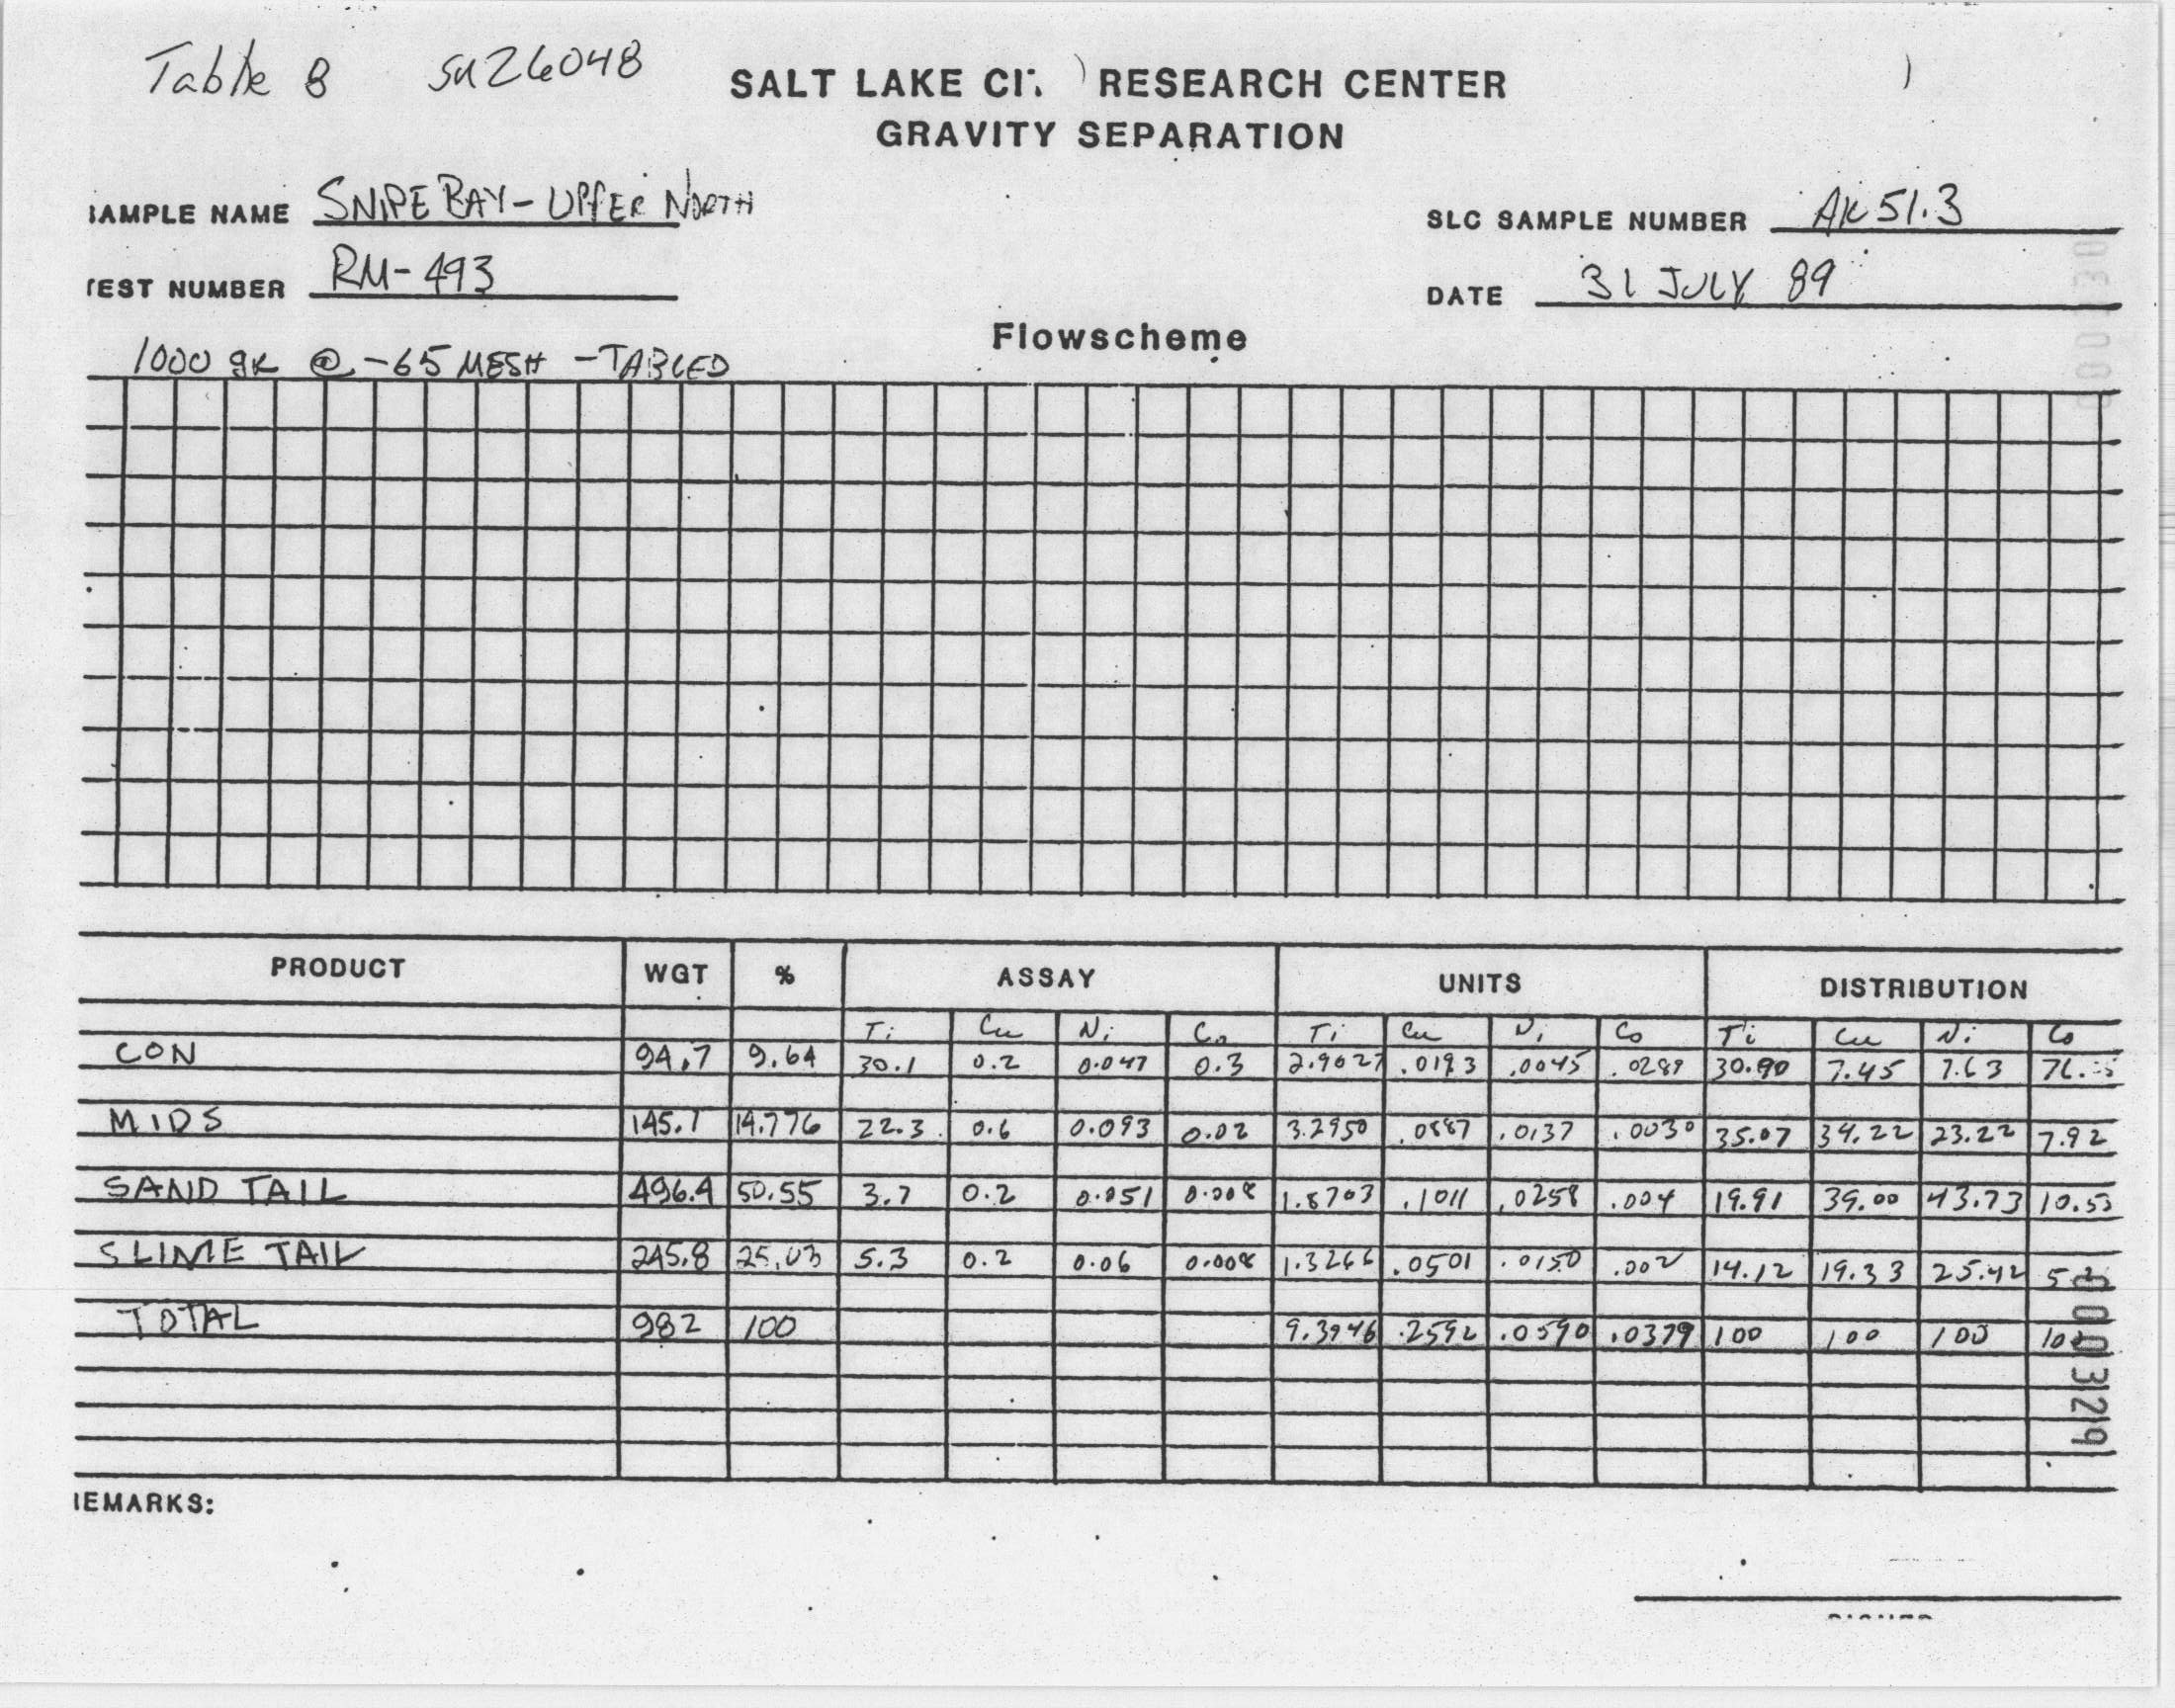 Table 8 sn26048
SALT LAKE CI. RESEARCH CENTER
GRAVITY SEPARATION
AMPLE NAME SNIPE BAY-UPPER NORTH
SLC SAMPLE NUMBER AK 51.3
EST NUMBER RM-493
DATE 31 JULY 89
Flowscheme
1000 gr @ -65 MESH -TABLED
PRODUCT WGT % ASSAY UNITS DISTRIBUTION
Ti Cu Ni Co Ti Cu Ni Co Ti Cu Ni Co
CON 94.7 9.64 30.1 0.2 0.047 0.3 2.9027 .0193 .0045 .0289 30.90 7.45 7.63
MIDS 145.1 14.776 22.3 0.6 0.093 0.02 3.2950 .0887 .0137 .0030 35.07 34.22 23.22 7.92
SAND TAIL 496.4 50.55 3.7 0.2 0.051 0.008 1.8703 .1011 .0258 .004 19.91 39.00 43.73 10.53
SLIME TAIL 245.8 25.03 5.3 0.2 0.06 0.008 1.3266 .0501 .0150 .002 14.12 19.33 25.42
TOTAL 982 100 9.3946 .2592 .0590 .0379 100 100 100
EMARKS: